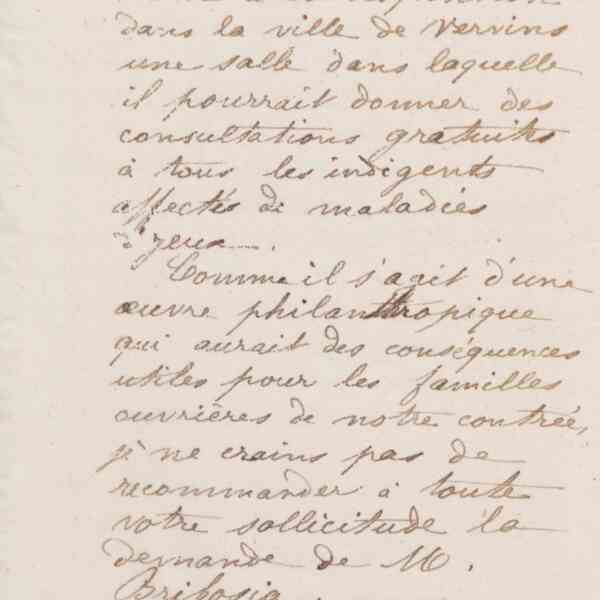 dans la ville de Vervins
une salle dans laquelle
il pourrait donner des
consultations gratuites
à tous les indigents
affectés de maladies
d'yeux
Comme il s'agit d'une
œuvre philanthropique
qui aurait des conséquences
utiles pour les familles
ouvrières de notre contrée,
je ne crains pas de
recommander à toute
votre sollicitude la
demande de M.
Bribosia